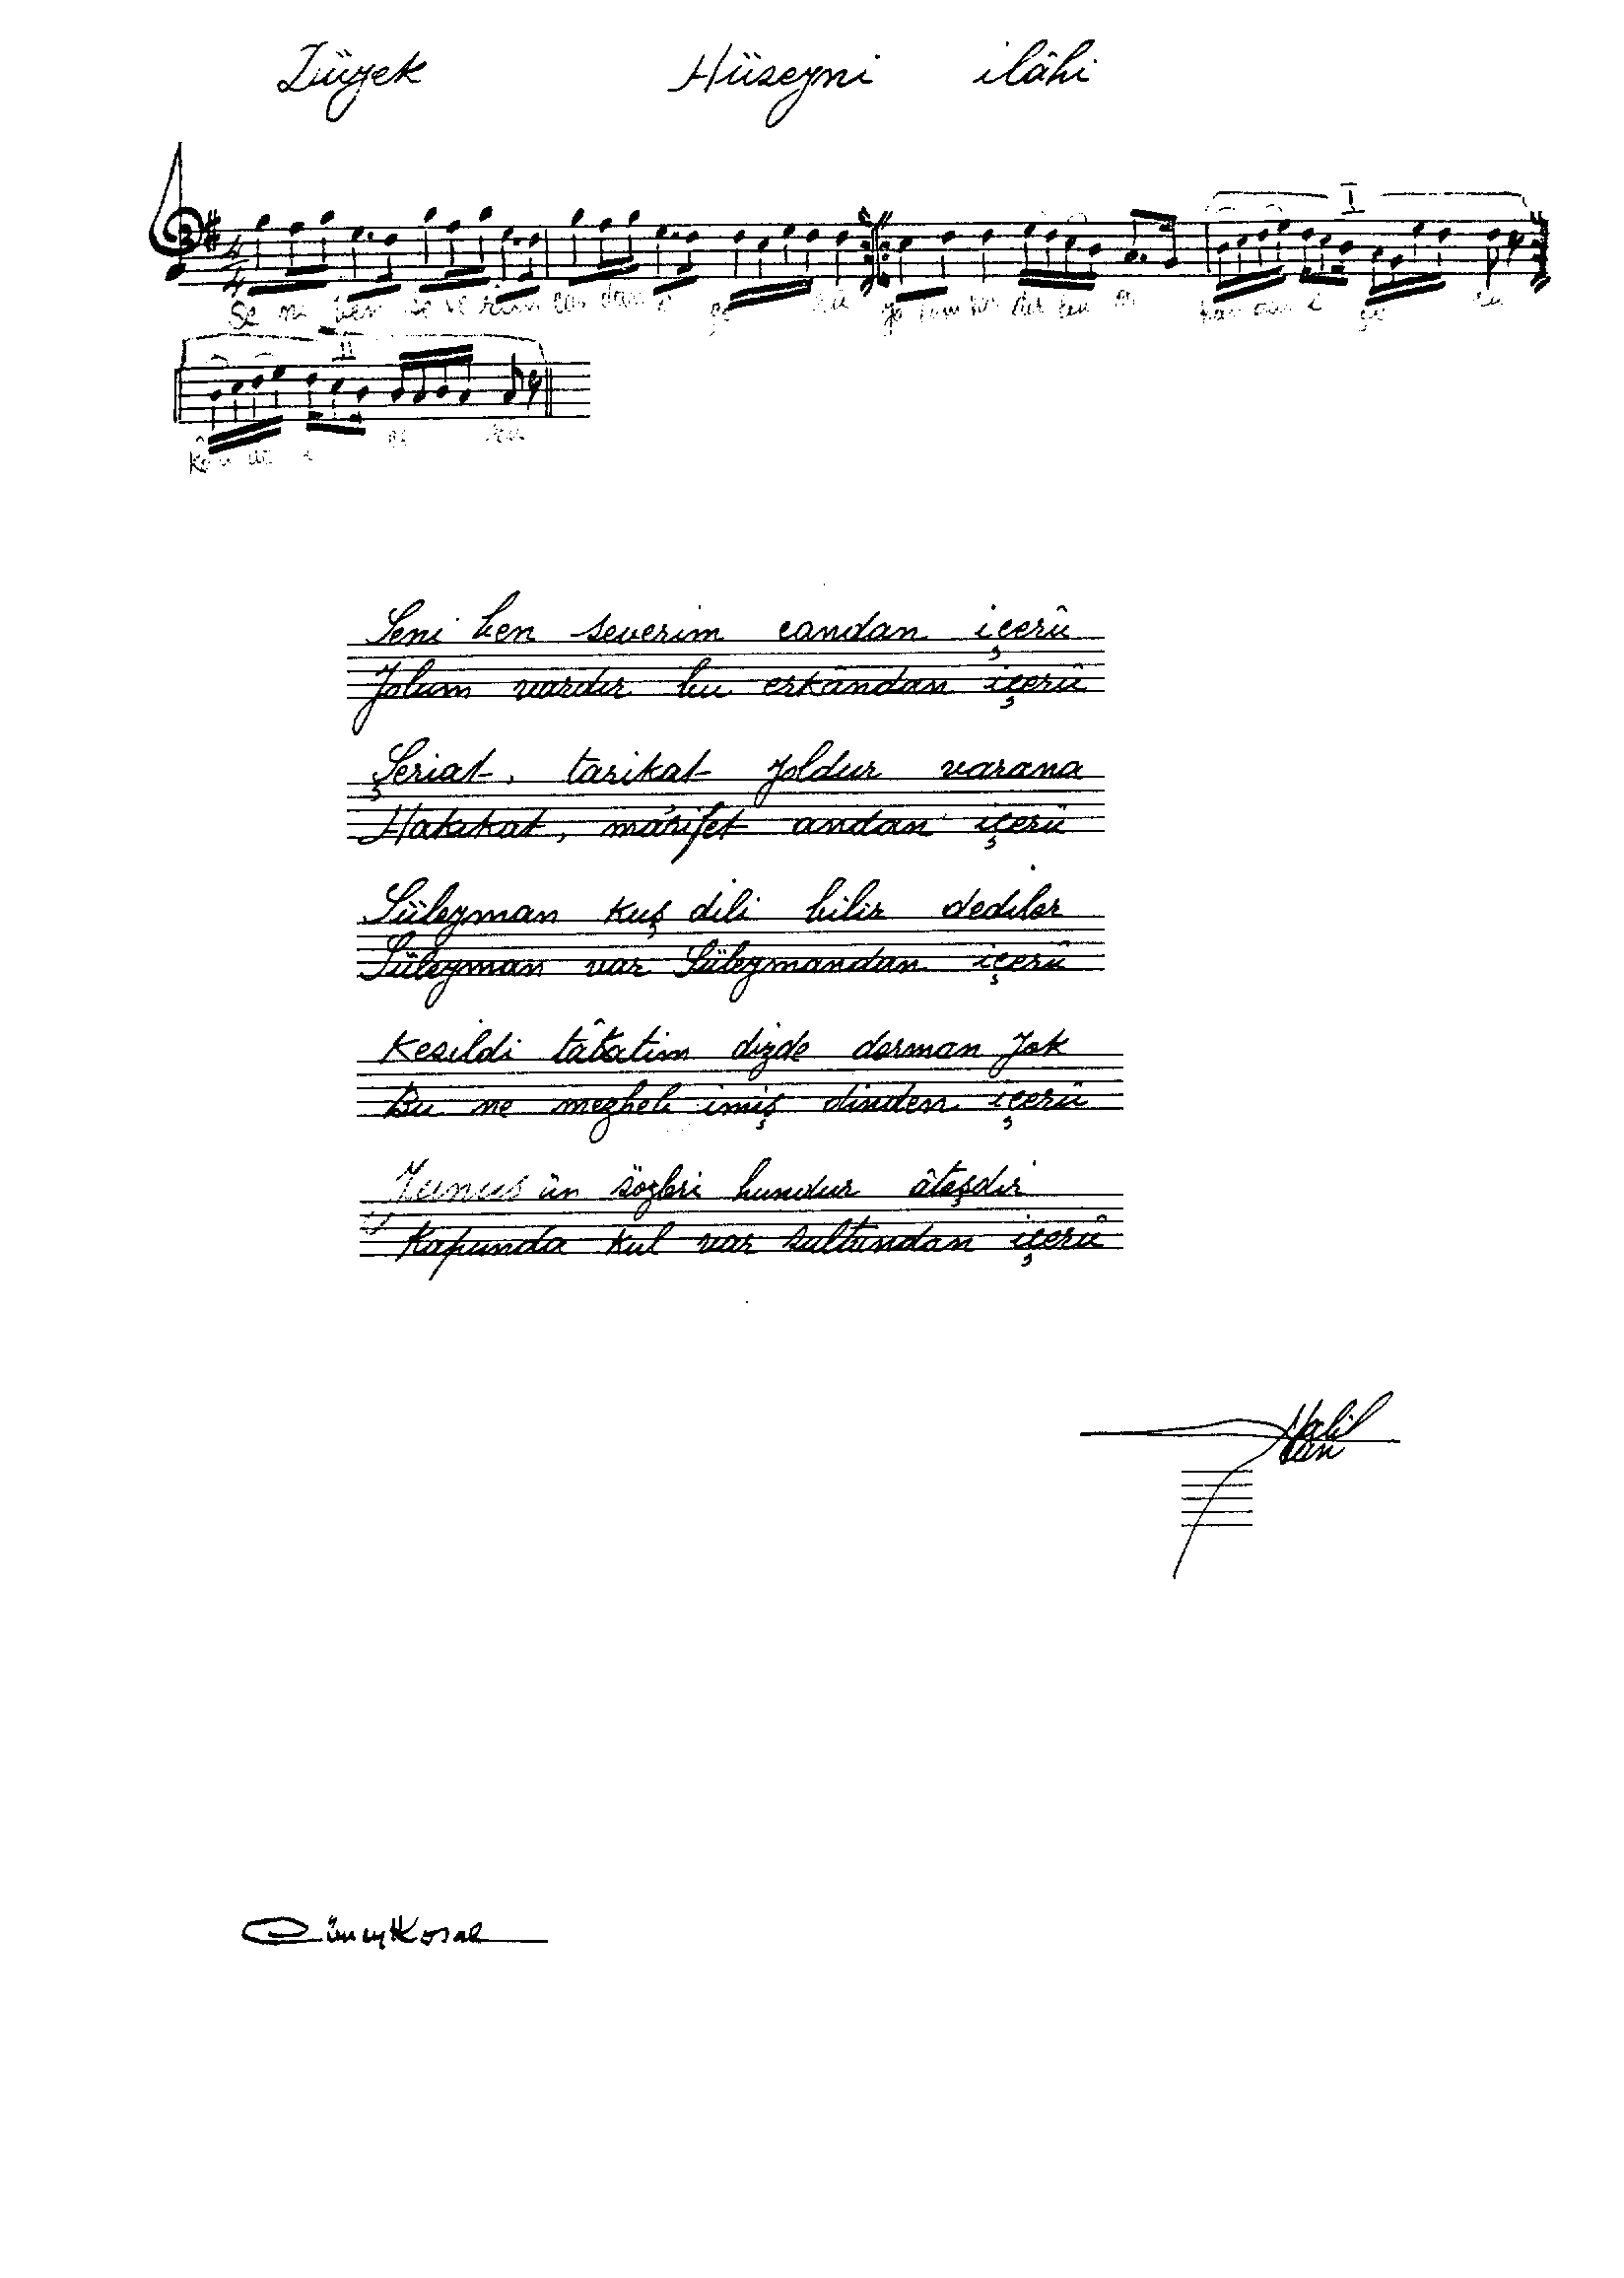 Düyek Hüseyni ilâhi
4/4
Se ni ben se ve rim can dan i çe rû yo lum var dır bu er kân dan i çe rû
I
II
kân dan i çe rû
Seni ben severim candan içerû
Yolum vardır bu erkândan içerû
Şeriat, tarikat yoldur varana
Hakıkat, mârifet andan içerû
Süleyman kuş dili bilir dediler
Süleyman var Süleymandan içerû
Kesildi tâkatim dizde derman yok
Bu ne mezheb imiş dinden içerû
Yunus ün sözleri hundur âteşdir
Kapunda kul var sultandan içerû
Halil Can
Cüneyt Kosal